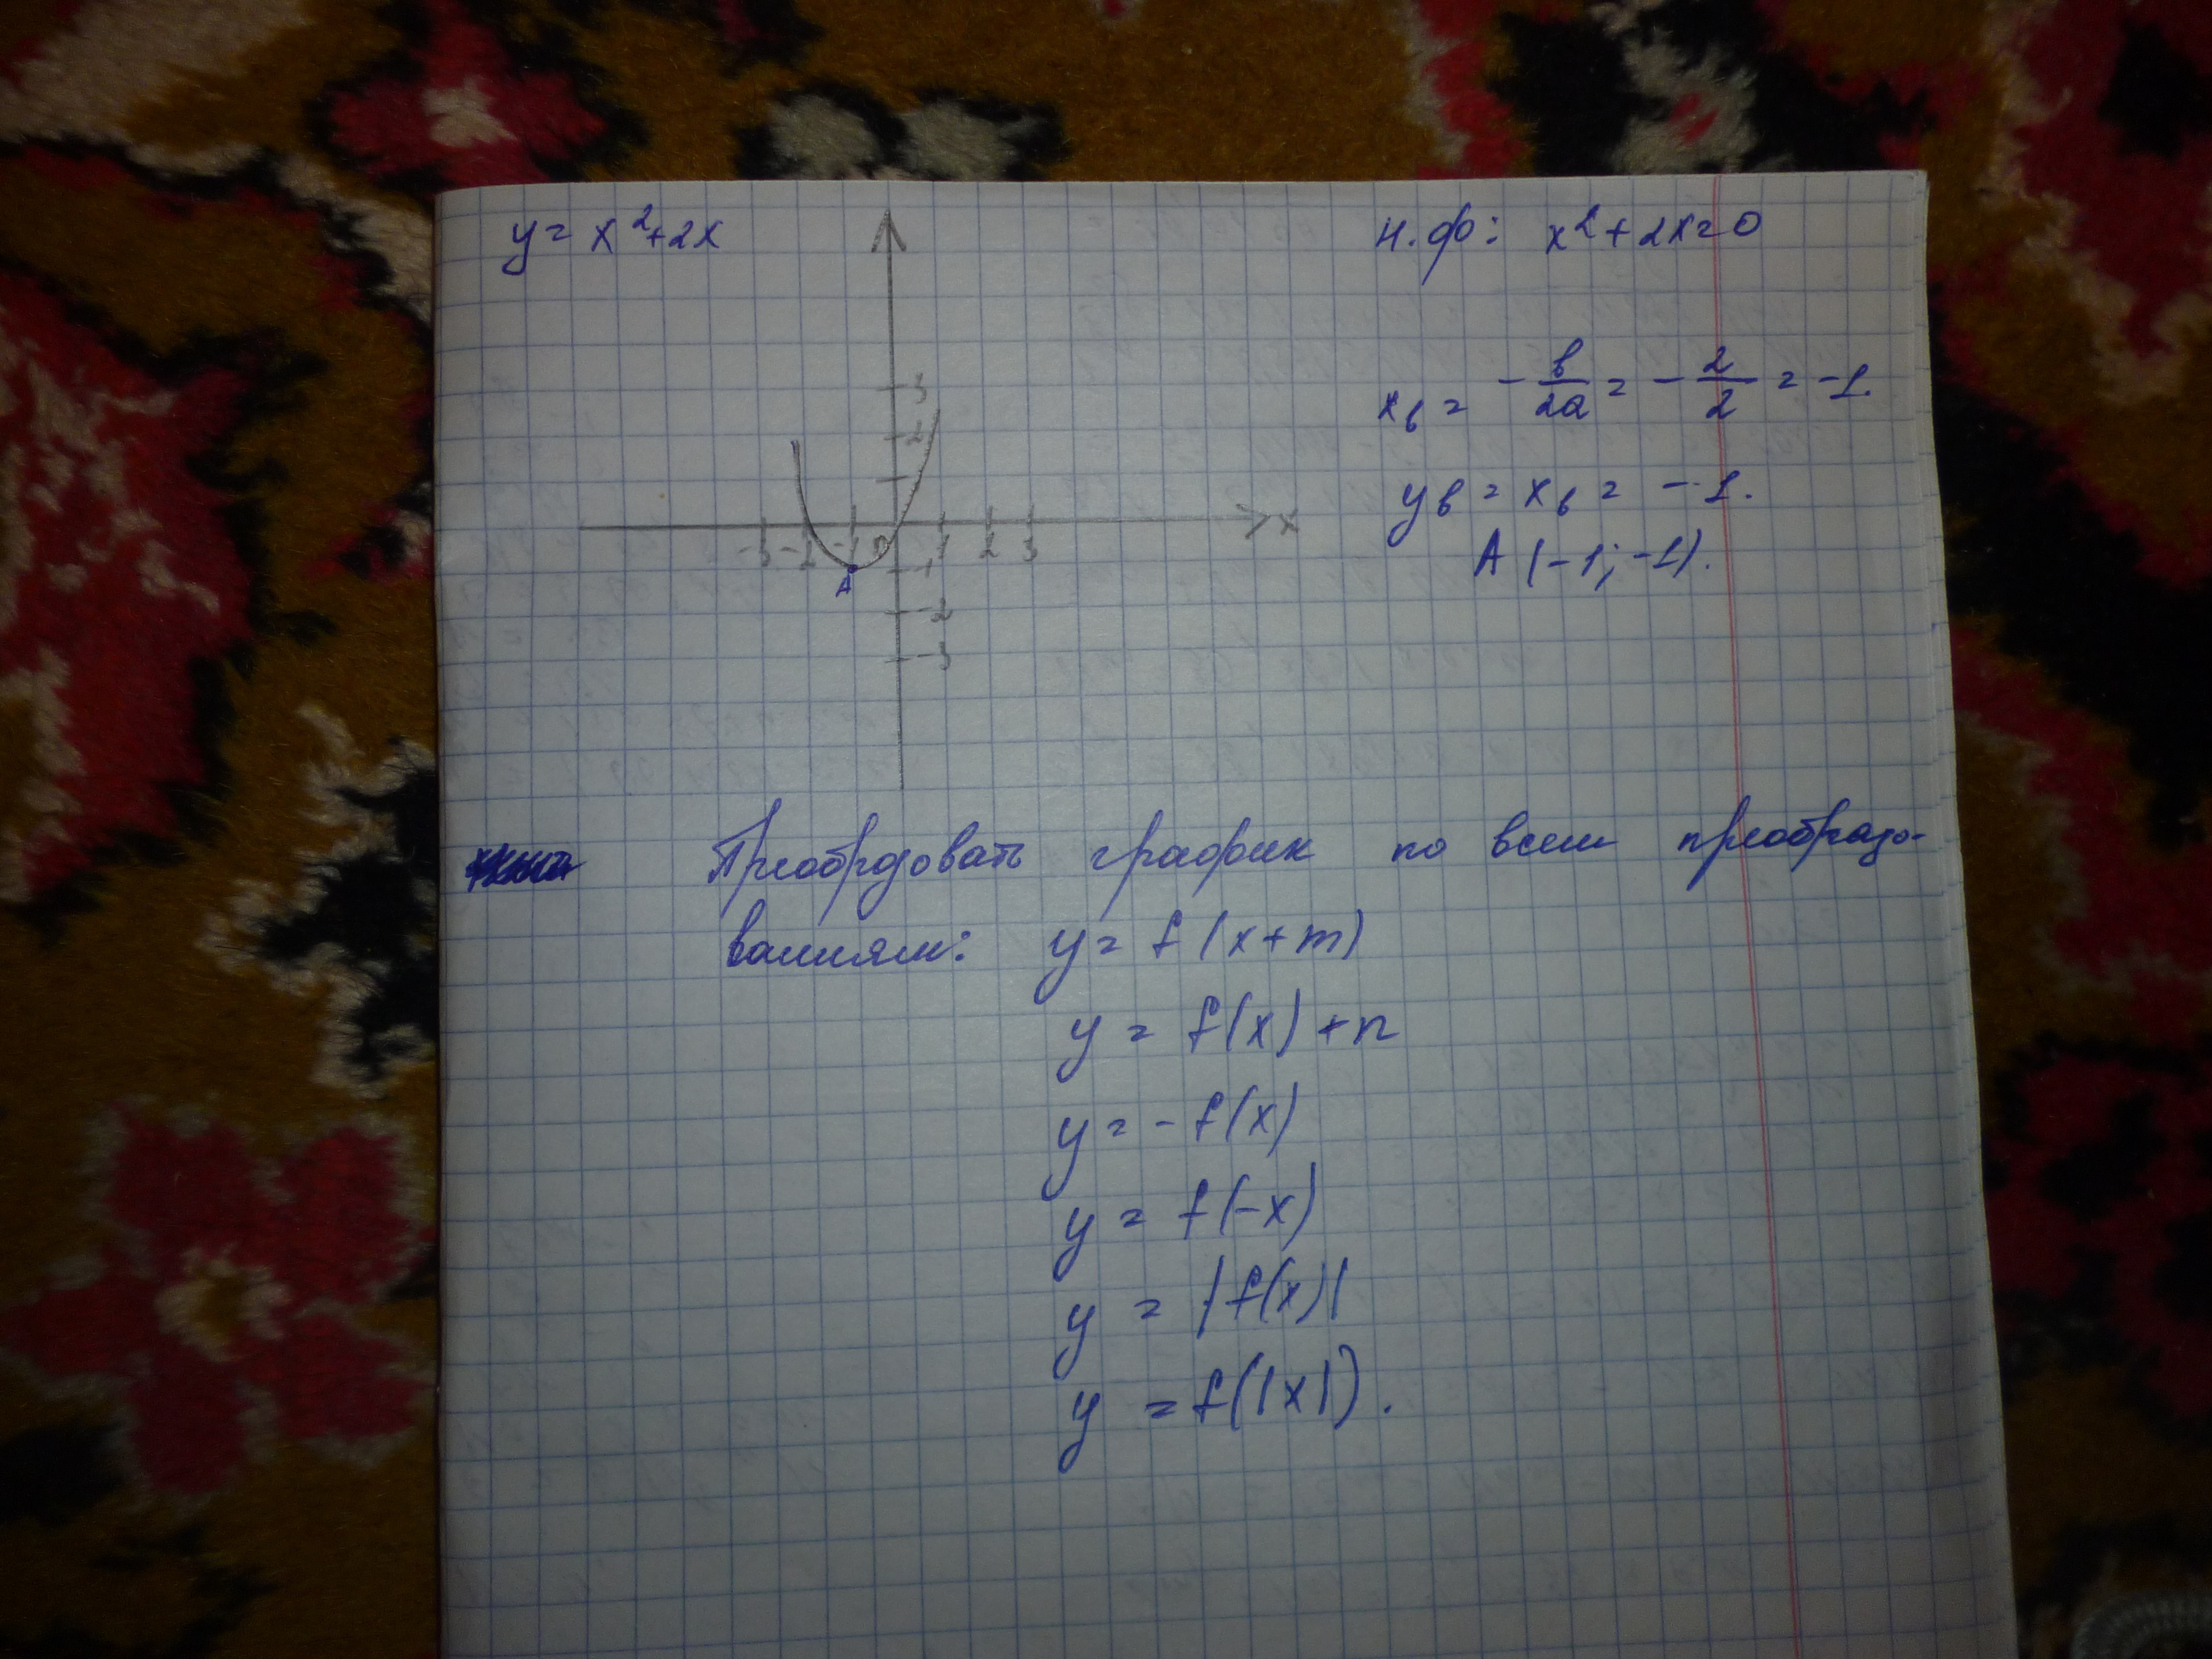 y = x²+2x
н.ф: x²+2x=0
x в = - в/2a = - 2/2 = -1.
y в = x в = -1.
A (-1; -1).
3
2
-3 -2 -1 0 1 2 3 x
-1
A
-2
-3
Преобрзовать график по всем преобразо-
ваниям: y = f(x+m)
y = f(x)+n
y = -f(x)
y = f(-x)
y = |f(x)|
y = f(|x|).